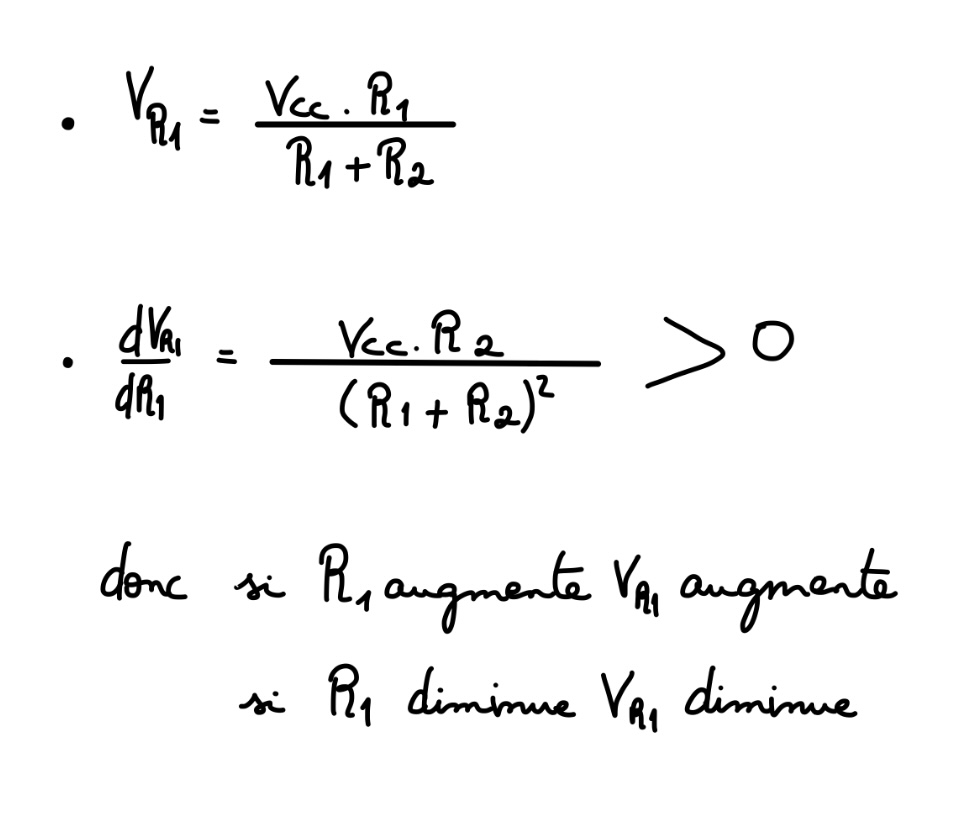 • V_R1 = Vcc . R1 / R1 + R2
• dV_R1 / dR1 = Vcc . R2 / (R1 + R2)² > 0
donc si R1 augmente V_R1 augmente
si R1 diminue V_R1 diminue